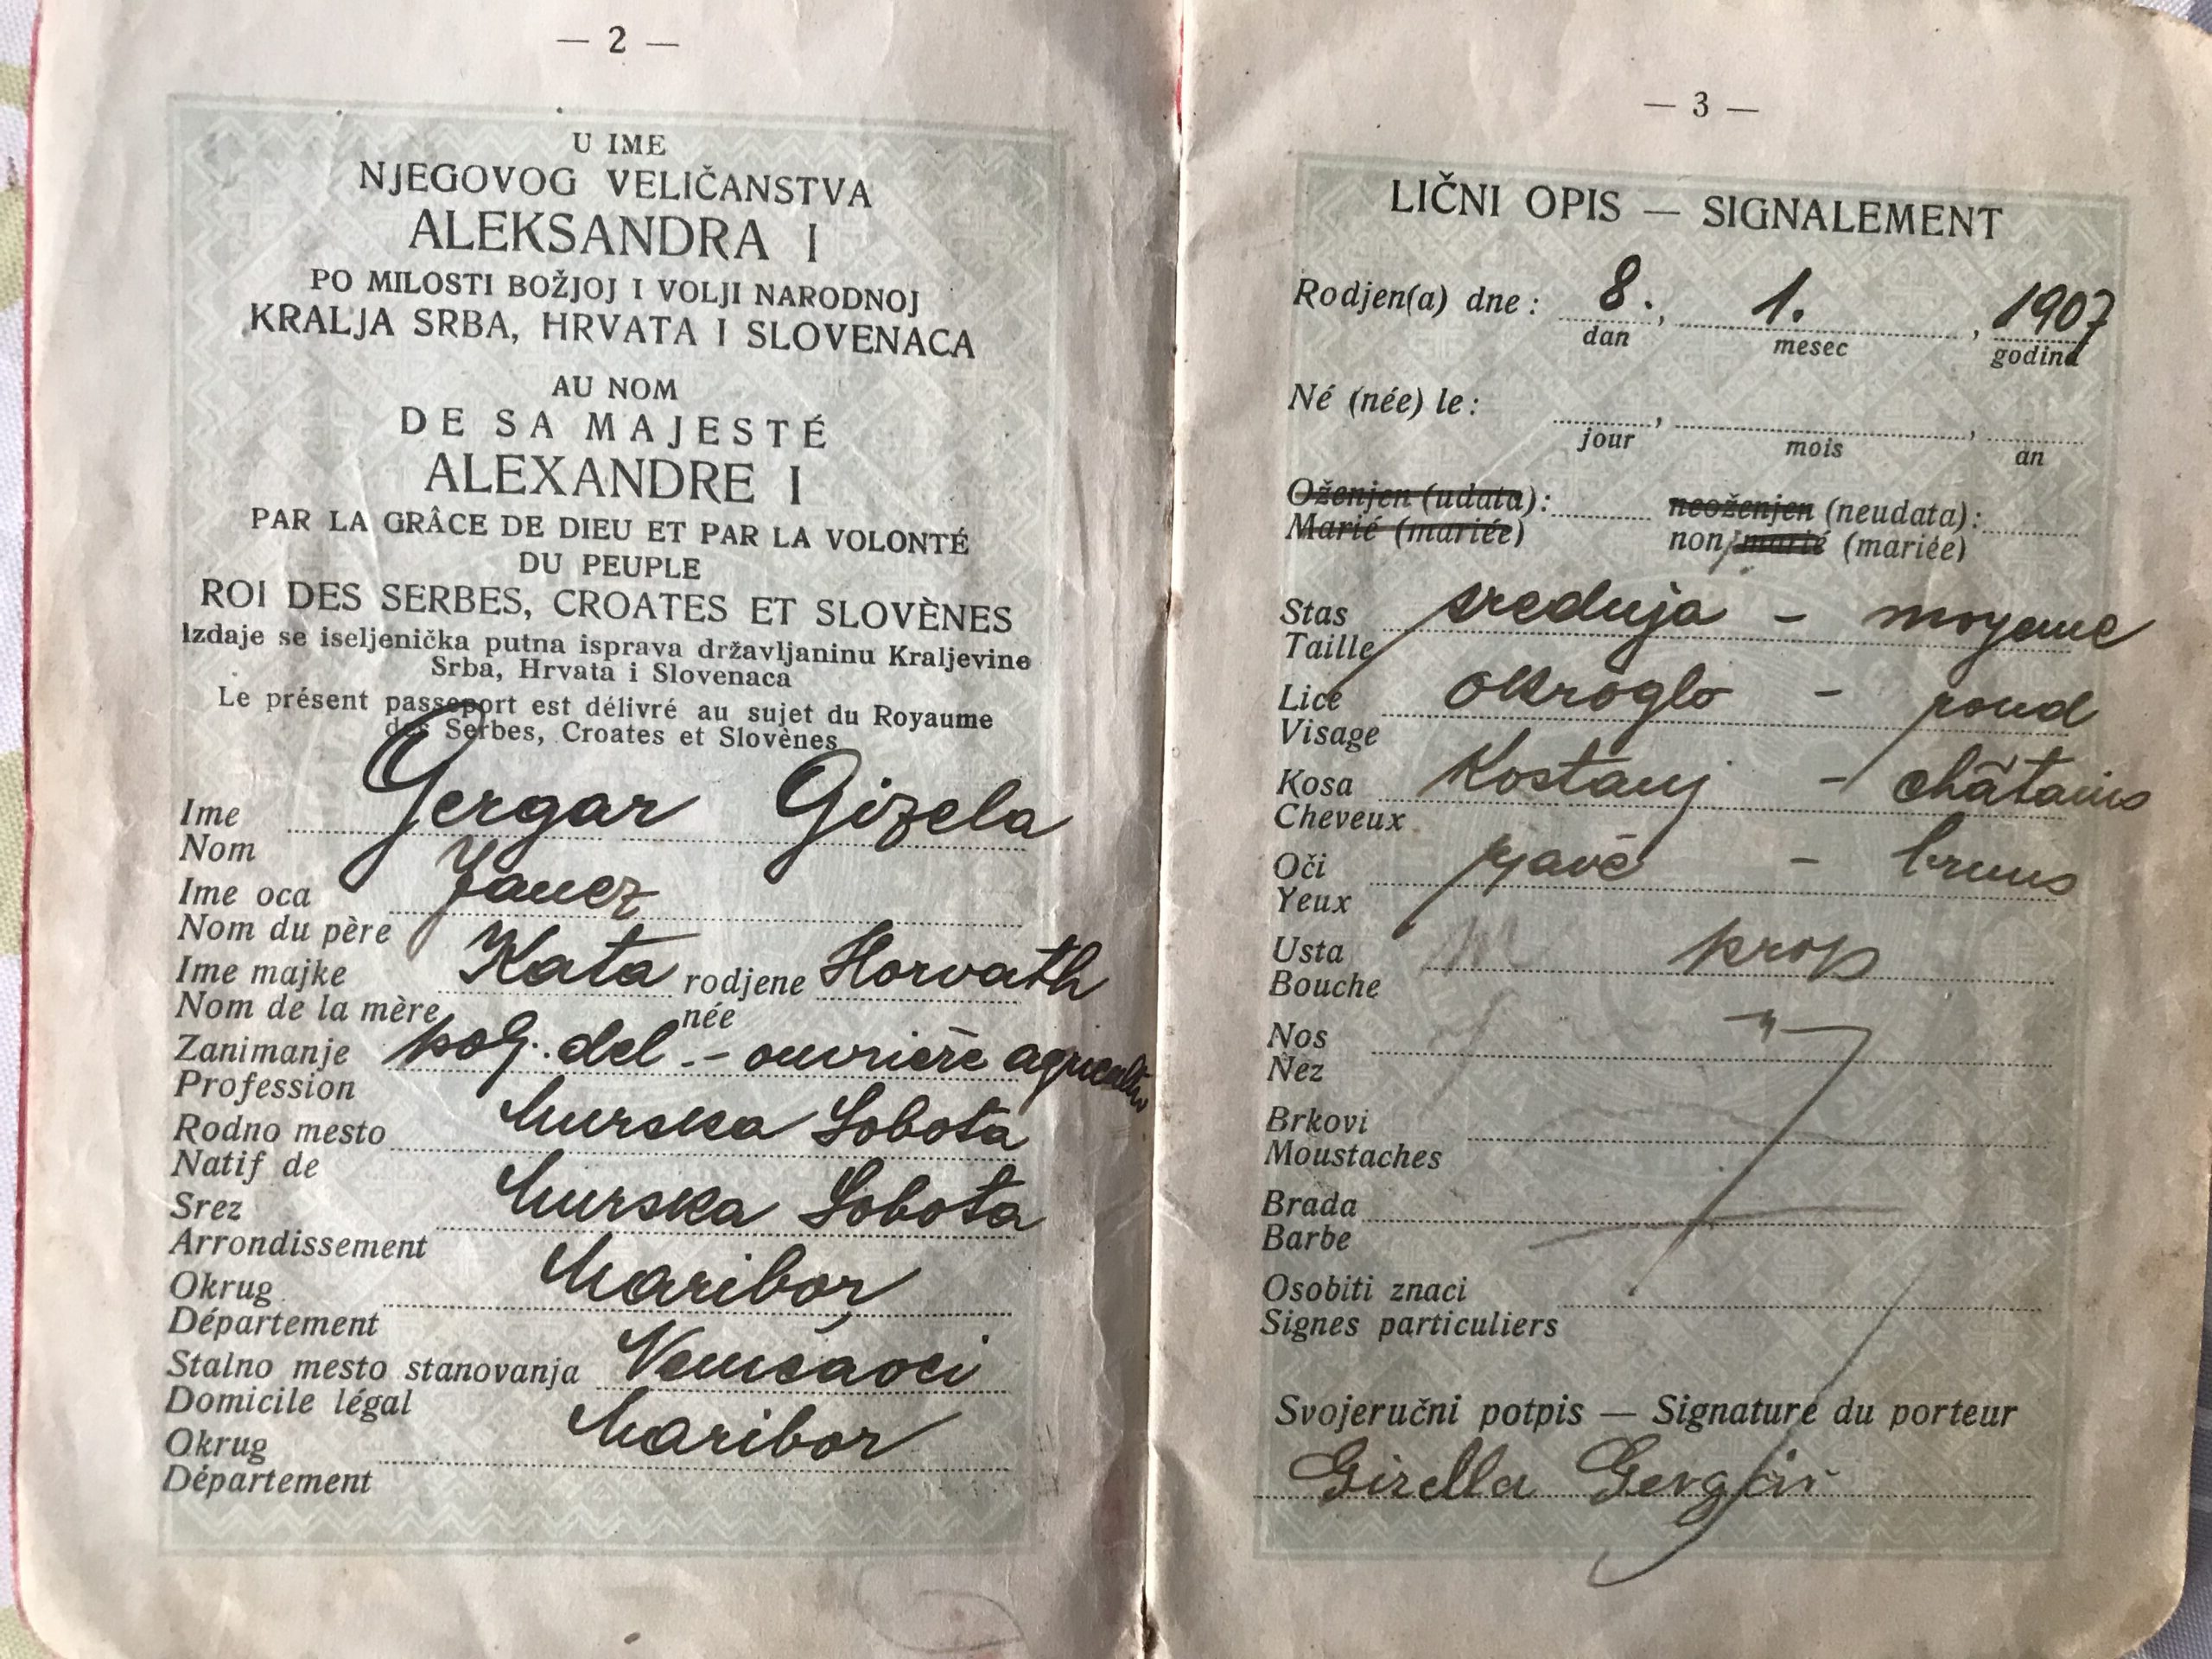 — 2 —
U IME
NJEGOVOG VELIČANSTVA
ALEKSANDRA I
PO MILOSTI BOŽJOJ I VOLJI NARODNOJ
KRALJA SRBA, HRVATA I SLOVENACA
AU NOM
DE SA MAJESTÉ
ALEXANDRE I
PAR LA GRÂCE DE DIEU ET PAR LA VOLONTÉ
DU PEUPLE
ROI DES SERBES, CROATES ET SLOVÈNES
Izdaje se iseljenička putna isprava državljaninu Kraljevine
Srba, Hrvata i Slovenaca
Le présent passeport est délivré au sujet du Royaume
des Serbes, Croates et Slovènes
Ime Gergar Gizela
Nom
Ime oca Janez
Nom du père
Ime majke Kata rodjene Horvath
Nom de la mère née
Zanimanje polj. del. - ouvrière
Profession
Rodno mesto Murska Sobota
Natif de
Srez Murska Sobota
Arrondissement
Okrug Maribor
Département
Stalno mesto stanovanja Nemčavci
Domicile légal
Okrug Maribor
Département
— 3 —
LIČNI OPIS — SIGNALEMENT
Rodjen(a) dne: 8., 1. , 1907
dan mesec godina
Né (née) le: , ,
jour mois an
Oženjen (udata): neoženjen (neudata):
Marié (mariée) non marié (mariée)
Stas srednja - moyenne
Taille
Lice okroglo - rond
Visage
Kosa kostanj - châtains
Cheveux
Oči rjave - bruns
Yeux
Usta prop
Bouche
Nos
Nez
Brkovi
Moustaches
Brada
Barbe
Osobiti znaci
Signes particuliers
Svojeručni potpis — Signature du porteur
Gizella